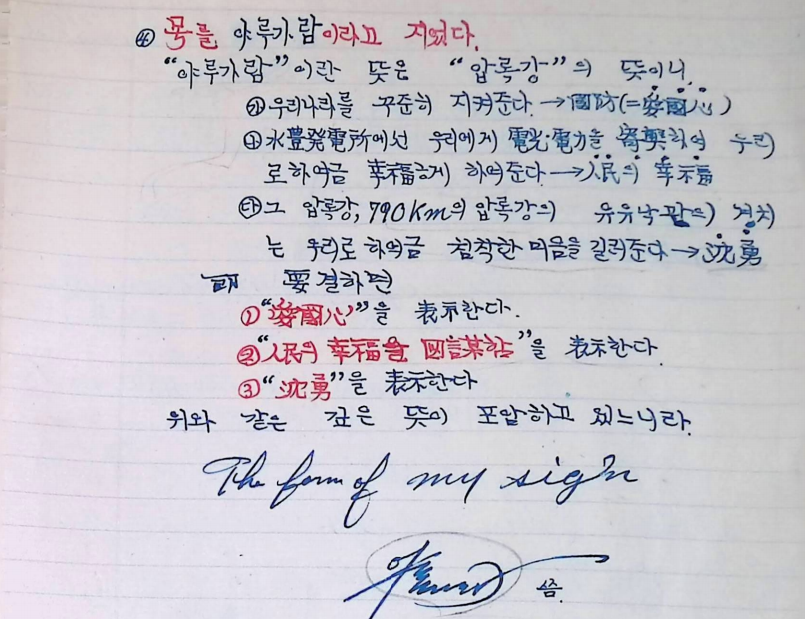 ④ 호를 야루가람이라고 지었다.
"야루가람"이란 뜻은 "압록강"의 뜻이니
㉮ 우리나라를 꾸준히 지켜준다. → 國防(=愛國心)
㉯ 水豊発電所에선 우리에게 電光·電力을 寄與하여 우리
로하여금 幸福스럽게 하여준다 → 人民의 幸福
㉰ 그 압록강, 790Km의 압록강의 유유낙관의 경치
는 우리로 하여금 침착한 마음을 길러준다 → 沈勇
要결하면
① "愛國心"을 表示한다.
② "人民의 幸福을 圖謀함"을 表示한다.
③ "沈勇"을 表示한다
위와 같은 깊은 뜻이 포함하고 있느니라.
The form of my sign
씀.